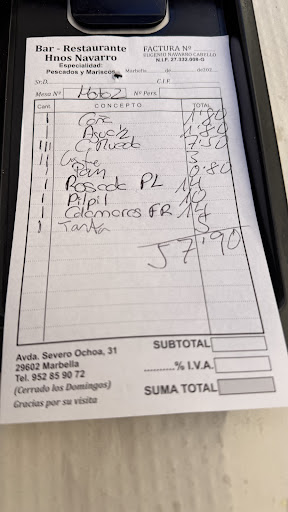 Bar - Restaurante
Hnos Navarro
Especialidad:
Pescados y Mariscos
FACTURA Nº
EUGENIO NAVARRO CABELLO
N.I.F. 27.332.006-G
Marbella, de de 200
Sr.D. C.I.F.
Mesa Nº Nº Pers.
Cant. CONCEPTO TOTAL
1 1'80
1 Agua 1'80
7'50
5
Pan 0'80
1 Rosada PL 14
1 Pilpil 10
1 Calamares FR
1 Tarta 5
57'90
SUBTOTAL
% I.V.A.
SUMA TOTAL
Avda. Severo Ochoa, 31
29602 Marbella
Tel. 952 85 90 72
(Cerrado los Domingos)
Gracias por su visita